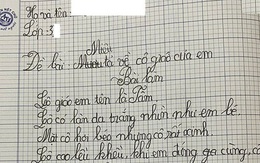 Họ và tên:
Lớp: 3
Mưu
Đề bài: tả về cô giáo của em
Bài làm
Cô giáo em tên là Tâm
Cô có làn da trắng nhìn như em bé.
Mặt cô hơi béo nhưng cô rất xanh.
Cô cao lều khều, khi em đứng gần cũng, cô